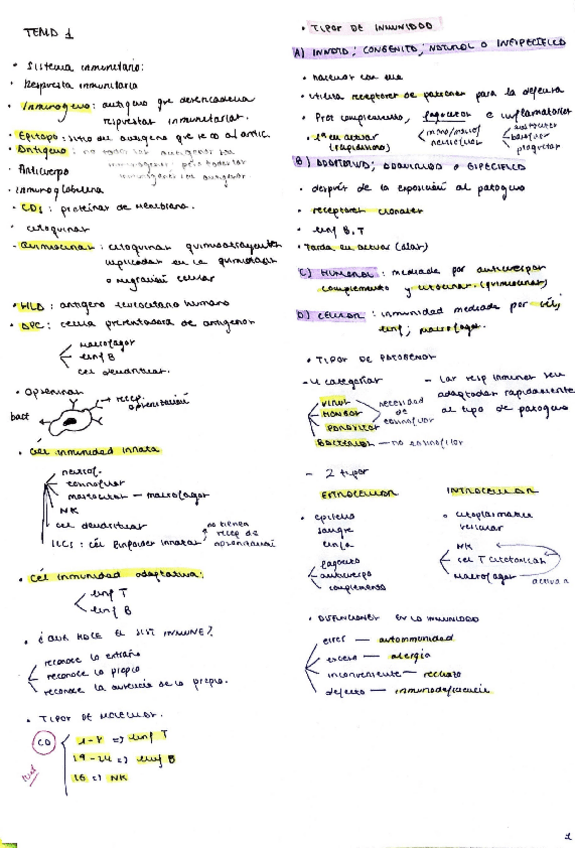 TEMA 1
• Sistema inmunitario:
• Respuesta inmunitaria
• Inmunogeno: antigeno que desencadena
respuestas inmunitarias.
• Epitopo: sitio del antigeno que se une al antic.
• Antigeno: no todos los antigenos son
inmunogenos pero todos los
inmunogenos son antigenos.
• Anticuerpo
• Inmunoglobulina
• CDs: proteinas de membrana.
• citoquinas
- Quimiocinas: citoquinas quimioatrayentes
implicadas en la quimiotaxis
o migración celular
• HLA: antigeno leucocitario humano
• APC: celula presentadora de antigenos
macrofagos
linf B
cel dendriticas.
• Opsoninas
bact
recep.
opsonización
• Cél inmunidad innata
neutrof.
eosinofilos
mastocitos — macrofagos
NK
cel dendriticas
ILCs: cél linfoides innatas
no tienen
recep de
opsonización
• Cél inmunidad adaptativa:
linf T
linf B
• ¿QUE HACE EL SIST INMUNE?
reconoce lo extraño
reconoce lo propio
reconoce la ausencia de lo propio.
• TIPOS DE MOLECULAS.
CD
1-8 => linf T
19-24 => linf B
16 => NK
• TIPOS DE INMUNIDAD
A) INNATA; CONGENITA; NATURAL O INESPECIFICA
• nacemos con ella
• utiliza receptores de patrones para la defensa
• Prot complemento, fagocitos e inflamatorios
• 1ª en actuar
(rapidisimo)
mono/macrof
neutrofilos
mastocitos
basofilos
plaquetas
B) ADAPTATIVA; ADQUIRIDA O ESPECIFICA
• después de la exposición al patogeno
• receptores clonales
• linf B, T
• Tarda en actuar (dias)
C) HUMORAL: mediada por anticuerpos
complemento y citocinas. (quimiocinas)
D) CELULAR: inmunidad mediada por cél;
linf; macrofagos.
• TIPOS DE PATOGENOS
- 4 categorias
VIRUS
HONGOS
PARASITOS
BACTERIAS — no eosinofilos
necesidad
de
eosinofilos
- Las resp inmunes son
adaptadas rapidamente
al tipo de patogeno
- 2 tipos
EXTRACELULAR
• epitelio
sangre
linfa
fagocito
anticuerpo
complemento
INTRACELULAR
• citoplasmatico
vesicular
NK
cel T citotoxicas
macrofagos
activan
• DISFUNCIONES EN LA INMUNIDAD
error — autoinmunidad
exceso — alergia
inconveniente — rechazo
defecto — inmunodeficiencia
1